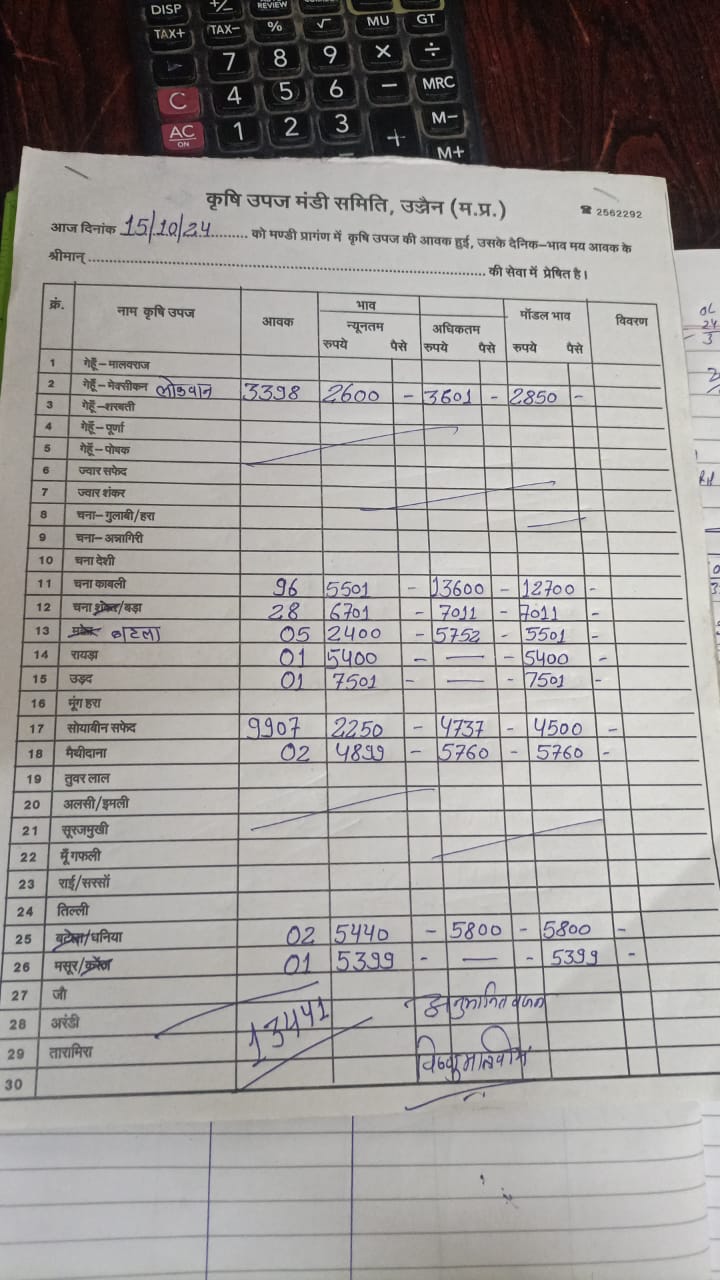 DISP +/− REVIEW MU GT
TAX+ TAX− % √
7 8 9 × ÷
C 4 5 6 − MRC
AC ON 1 2 3 + M−
M+
कृषि उपज मंडी समिति, उज्जैन (म.प्र.) ☎ 2562292
आज दिनांक 15/10/24 .......... को मण्डी प्रागंण में कृषि उपज की आवक हुई, उसके दैनिक–भाव मय आवक के
श्रीमान् .......... की सेवा में प्रेषित है।
क्रं. नाम कृषि उपज आवक भाव मॉडल भाव विवरण
न्यूनतम अधिकतम
रुपये पैसे रुपये पैसे रुपये पैसे
1 गेहूँ–मालवराज
2 गेहूँ–मेक्सीकन लोकवान 3398 2600 - 3601 - 2850 -
3 गेहूँ–शरबती
4 गेहूँ–पूर्णा
5 गेहूँ–पोषक
6 ज्वार सफेद
7 ज्वार शंकर
8 चना–गुलाबी/हरा
9 चना–अन्नागिरी
10 चना देशी
11 चना काबली 96 5501 - 13600 - 12700 -
12 चना /बड़ा 28 6701 - 7011 - 7011 -
13 बटला 05 2400 - 5752 - 5501 -
14 रायड़ा 01 5400 - — - 5400 -
15 उड़द 01 7501 - — - 7501 -
16 मूंग हरा
17 सोयाबीन सफेद 9907 2250 - 4737 - 4500 -
18 मैथीदाना 02 4899 - 5760 - 5760 -
19 तुवर लाल
20 अलसी/इमली
21 सूरजमुखी
22 मूँगफली
23 राई/सरसों
24 तिल्ली
25 बटला/धनिया 02 5440 - 5800 - 5800 -
26 मसूर/ 01 5399 - — - 5399 -
27 जौ
28 अरंडी 13441 अनुमानित वजन
29 तारामिरा
30